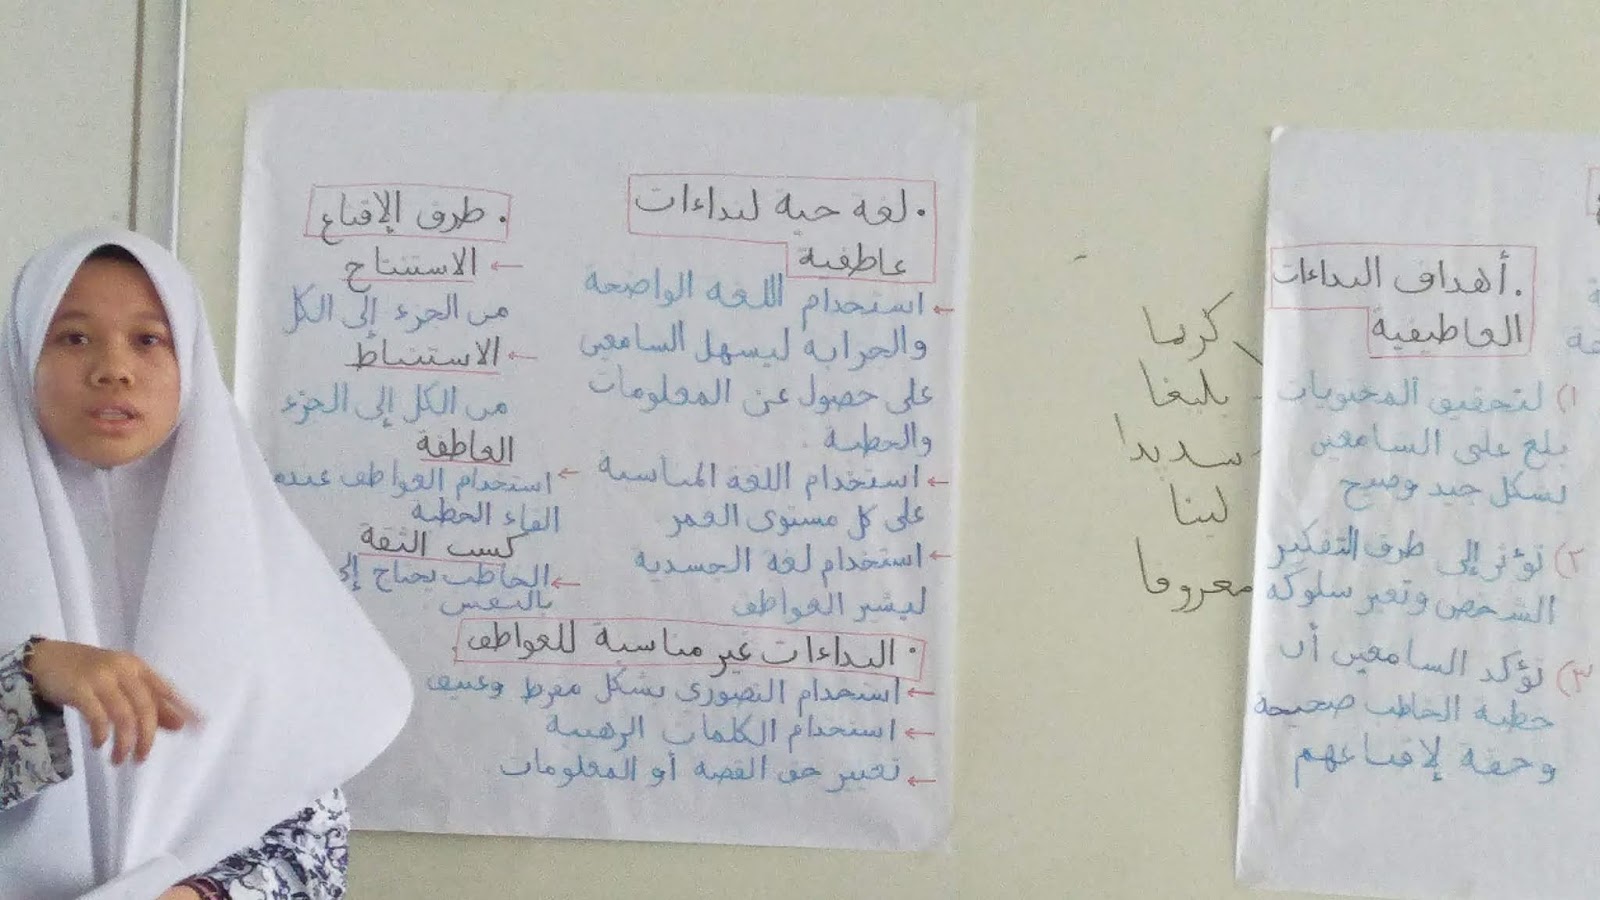 . أهداف النداءات
العاطيفية
١) لتحقيق المحتويات
بلغ على السامعين
بشكل جيد وصيح
٢) تؤثر إلى طرف التفكير
الشخص وتغير سلوكه
٣) تؤكد السامعين أن
خطبة الخاطب صحيحة
وحقة لإقناعهم
كريما
بليغا
سديدا
لينا
معروفا
. لغة حية لنداءات
عاطفية
← استخدام اللغة الواضحة
والجرابة ليسهل السامعين
على حصول عن المعلومات
والخطبة
← استخدام اللغة المناسبة
على كل مستوى العمر
← استخدام لغة الجسدية
ليشير العواطف
. النداءات غير مناسبة للعواطف
← استخدام التصورى بشكل مفرط وعنيف
← استخدام الكلمات الرهيبة
← تعبير حق القصة أو المعلومات
. طرف الإقناع
← الاستنتاج
من الجزء إلى الكل
← الاستنباط
من الكل إلى الجزء
العاطفة
← استخدام العواطف عند
القاء الخطبة
كسب الثقة
← الخاطب يحتاج إلى
بالنفس